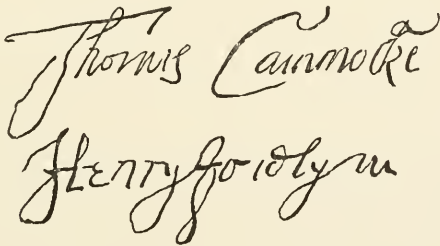 Thomis Cammocke
Henry Josslyn